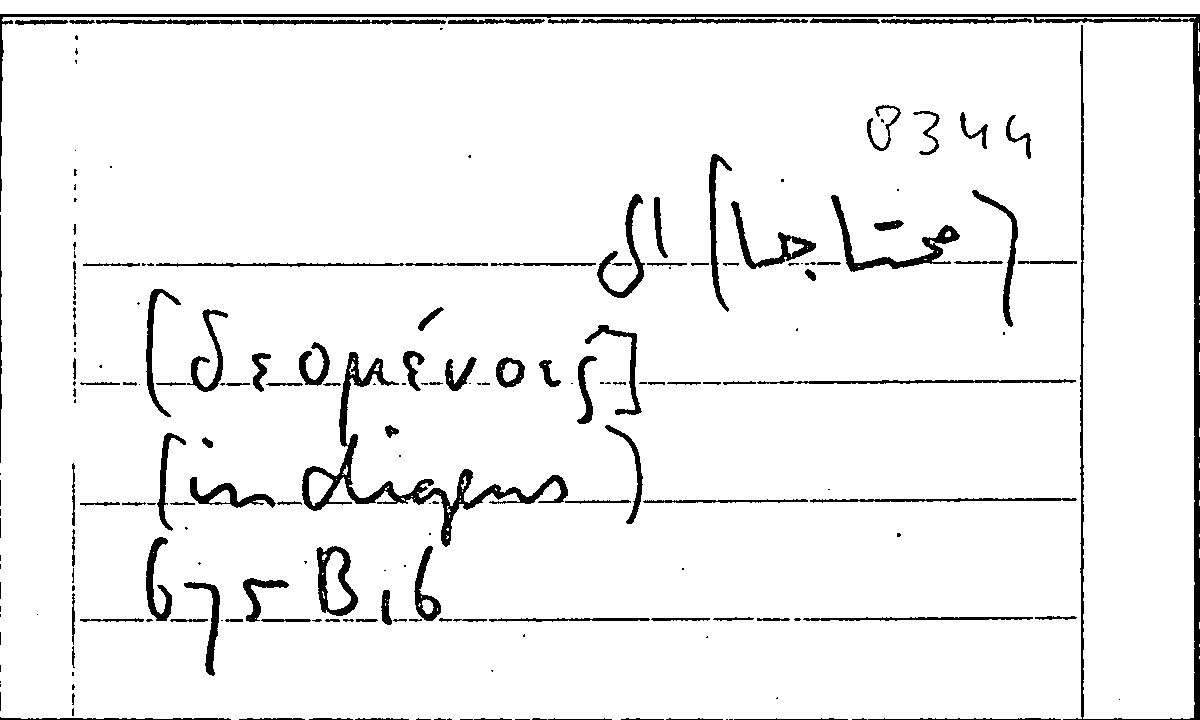 0344
(محتاجا) ال
[δεομένοις]
(indigens)
675 B 16